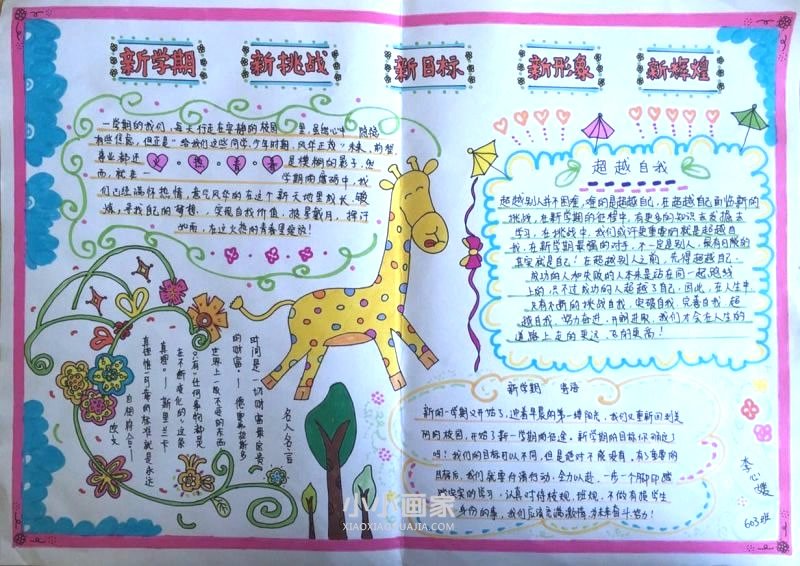 新学期
新挑战
新目标
新形象
新辉煌
一学期的我们,每天行走在安静的校园里,虽然心中隐隐
有些焦急,但正是"给我们这些同学少年时期,风华正茂"未来,前程
事业都还是模糊的影子,然
而,就在一学期的启动中,我
们已经满怀热情,意气风华的在这个新天地里成长、锻
炼,寻找自己的梦想,实现自我价值,披星戴月,挥汗
如雨,在这火热的青春里绽放!
超越自我
超越别人并不困难,难的是超越自己,在超越自己面临新的
挑战,在新学期的征程中,有更多的知识去发掘去
学习,在挑战中,我们或许更重要的就是超越自
我,在新学期最强的对手,不一定是别人,最有可能的
其实就是自己!在超越别人之前,先得超越自己。
成功的人和失败的人本来是站在同一起跑线
上的,只不过成功的人超越了自己。因此,在人生中
只有不断的挑战自我,突破自我,完善自我,超
越自我,努力奋进,开朗进取,我们才会在人生的
道路上走的更远,飞的更高!
名人名言
时间是一切财富中最宝贵
的财富。——德奥弗拉斯多
世界上一成不变的东西
只有"任何事物都是
在不断变化的"这条
真理。——斯里兰卡
真理惟一可靠的标准就是永远
自相符合。
欧文
新学期 寄语
新的一学期又开始了,迎着早晨的第一缕阳光,我们又重新回到美
丽的校园,开始了新一学期的征途。新学期的目标你确定了
吗?我们的目标可以不同,但是绝对不能没有。有了重要的
目标后,我们就要付诸行动,全力以赴,一步一个脚印踏
踏实实的学习,认真对待校规、班规,不做有损学生
身份的事,我们应该充满激情,为未来奋斗努力!
李心媛
603班
小小画家
XIAOXIAOHUAJIA.COM